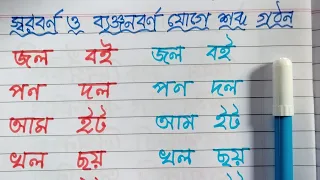 স্বরবর্ণ ও ব্যঞ্জনবর্ণ যোগে শব্দ গঠন
জল বই জল বই
পন দল পন দল
আম ইট আম ইট
খল ছয় খল ছয়